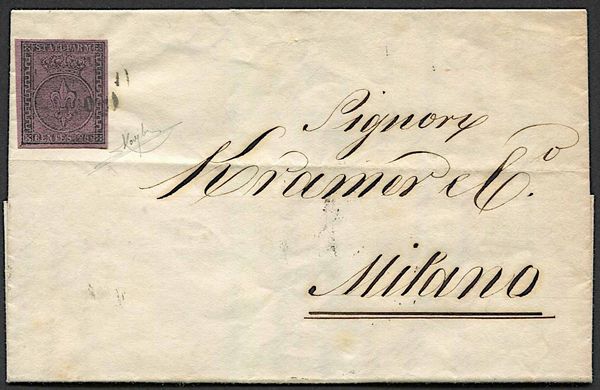 STATI PARM.
CENTES. 25
Signori
Kramer e C.o
Milano